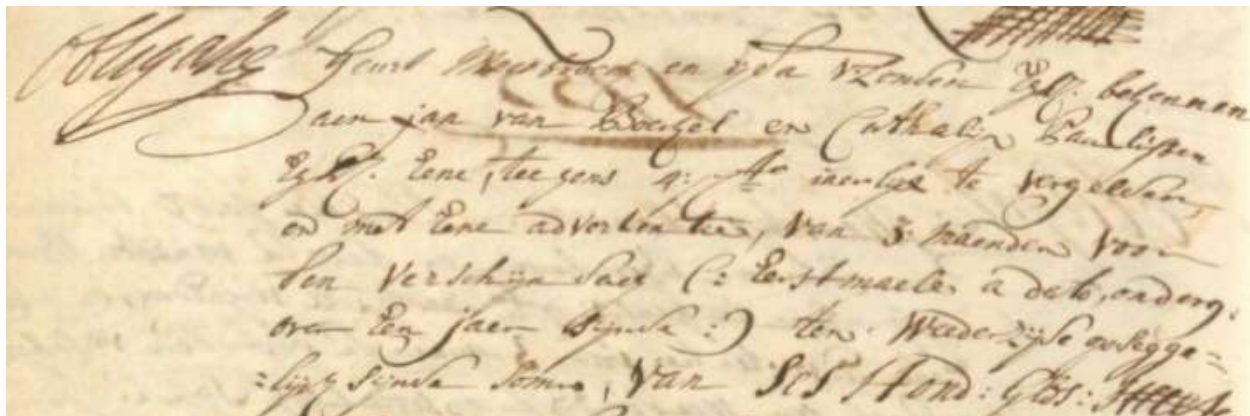 obligatie Geurt en ijda Zonder Eghl: bekennen
aen jan van Boekel en Cathalijn Paulissen
Eghl: Eene, tee gens 4: pto iaerlijx te vergelden,
en met Eene advertentie, van 3 maenden voor
den verschijn dagh (: Eerstmaelen a dato onderg:
over Een jaer sijnde :) ten Weederzijde opsegge=
=lijke sijnde somme, van Ses Hond: Glds: